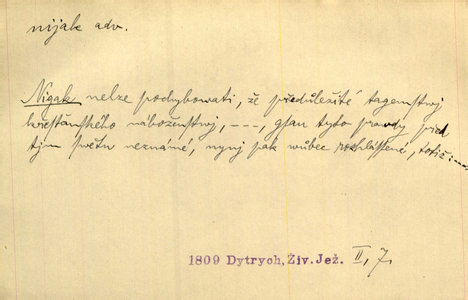 nijak adv.
Nigak nelze pochybowati, že předůležité tagemstwj
křesťanského náboženstwj, ---, gsau tyto prawdy před
tjm swětu neznámé, nynj pak wůbec rozhlássené, totiž: ---
1809 Dytrych, Živ. Jež. II, 7.